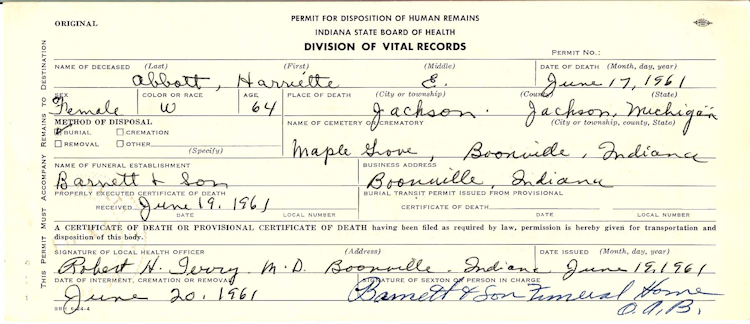 ORIGINAL
PERMIT FOR DISPOSITION OF HUMAN REMAINS
INDIANA STATE BOARD OF HEALTH
DIVISION OF VITAL RECORDS
PERMIT NO.:
THIS PERMIT MUST ACCOMPANY REMAINS TO DESTINATION
NAME OF DECEASED (Last) (First) (Middle) DATE OF DEATH (Month, day, year)
Abbott, Harriette E. June 17, 1961
SEX COLOR OR RACE AGE PLACE OF DEATH (City or township) (County) (State)
Female W 64 Jackson. Jackson, Michigan
METHOD OF DISPOSAL NAME OF CEMETERY OR CREMATORY (City or township, county, State)
BURIAL CREMATION
REMOVAL OTHER (Specify)
Maple Grove, Boonville, Indiana
NAME OF FUNERAL ESTABLISHMENT BUSINESS ADDRESS
Barnett & Son Boonville, Indiana
PROPERLY EXECUTED CERTIFICATE OF DEATH BURIAL TRANSIT PERMIT ISSUED FROM PROVISIONAL
RECEIVED June 19, 1961 CERTIFICATE OF DEATH
DATE LOCAL NUMBER DATE LOCAL NUMBER
A CERTIFICATE OF DEATH OR PROVISIONAL CERTIFICATE OF DEATH having been filed as required by law, permission is hereby given for transportation and
disposition of this body.
SIGNATURE OF LOCAL HEALTH OFFICER (Address) DATE ISSUED (Month, day, year)
Robert H. Terry M.D. Boonville, Indiana June 19, 1961
DATE OF INTERMENT, CREMATION OR REMOVAL SIGNATURE OF SEXTON OR PERSON IN CHARGE
June 20, 1961 Barnett & Son Funeral Home
O.A.B.